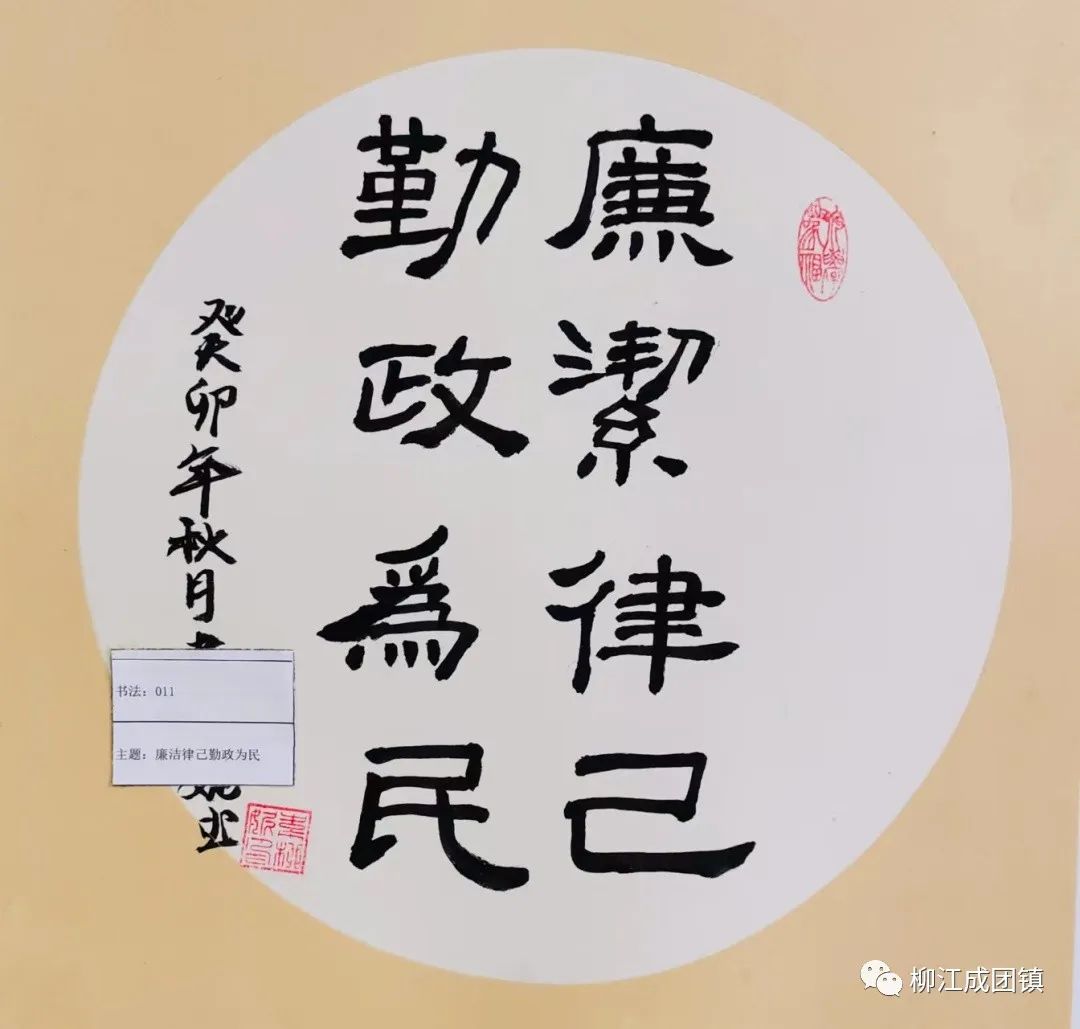 廉潔律己
勤政為民
癸卯年秋月
书法：011
主题：廉洁律己勤政为民
柳江成团镇